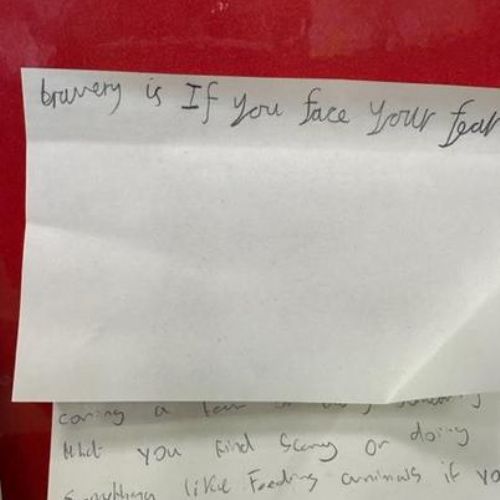 bravery is If you face your fear
coming a fear
What you find scary or doing
Something like Feeding animals if yo